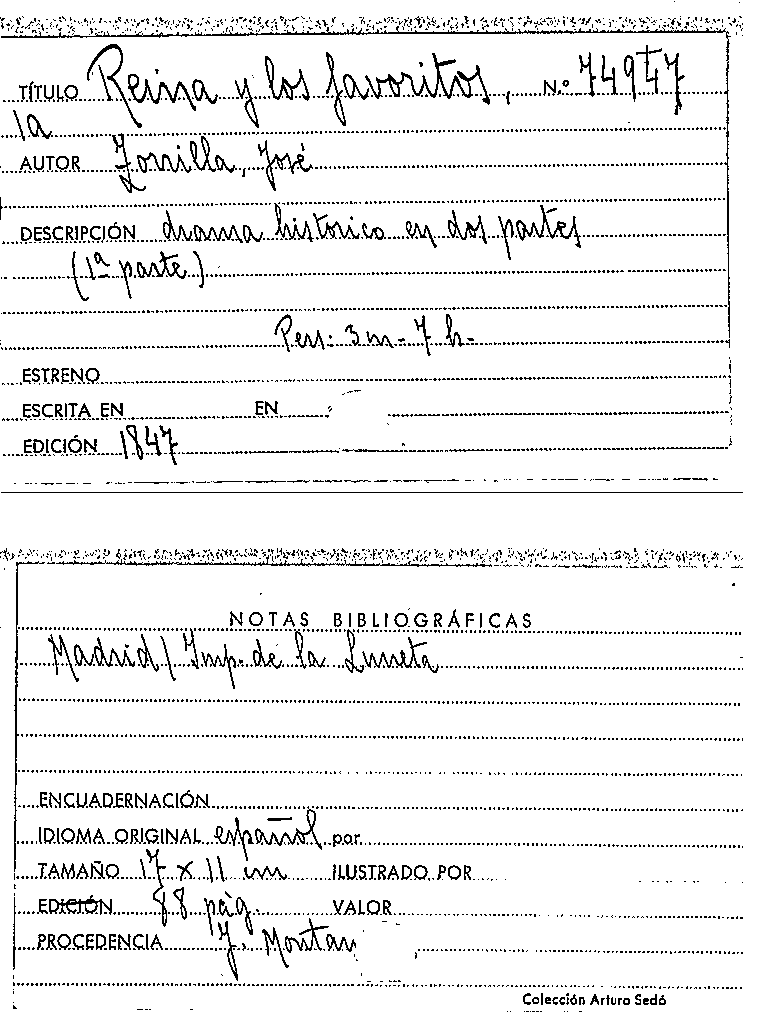 TÍTULO Reina y los favoritos, N.º 74947
la
AUTOR Zorrilla, José
DESCRIPCIÓN drama historico en dos partes
(1ª parte)
Pers: 3 m - 7 h-
ESTRENO
ESCRITA EN EN
EDICIÓN 1847
NOTAS BIBLIOGRÁFICAS
Madrid / Imp. de la Luneta
ENCUADERNACIÓN
IDIOMA ORIGINAL español por
TAMAÑO 17 x 11 cm ILUSTRADO POR
EDICIÓN 88 pág. VALOR
PROCEDENCIA J. Montan
Colección Arturo Sedó